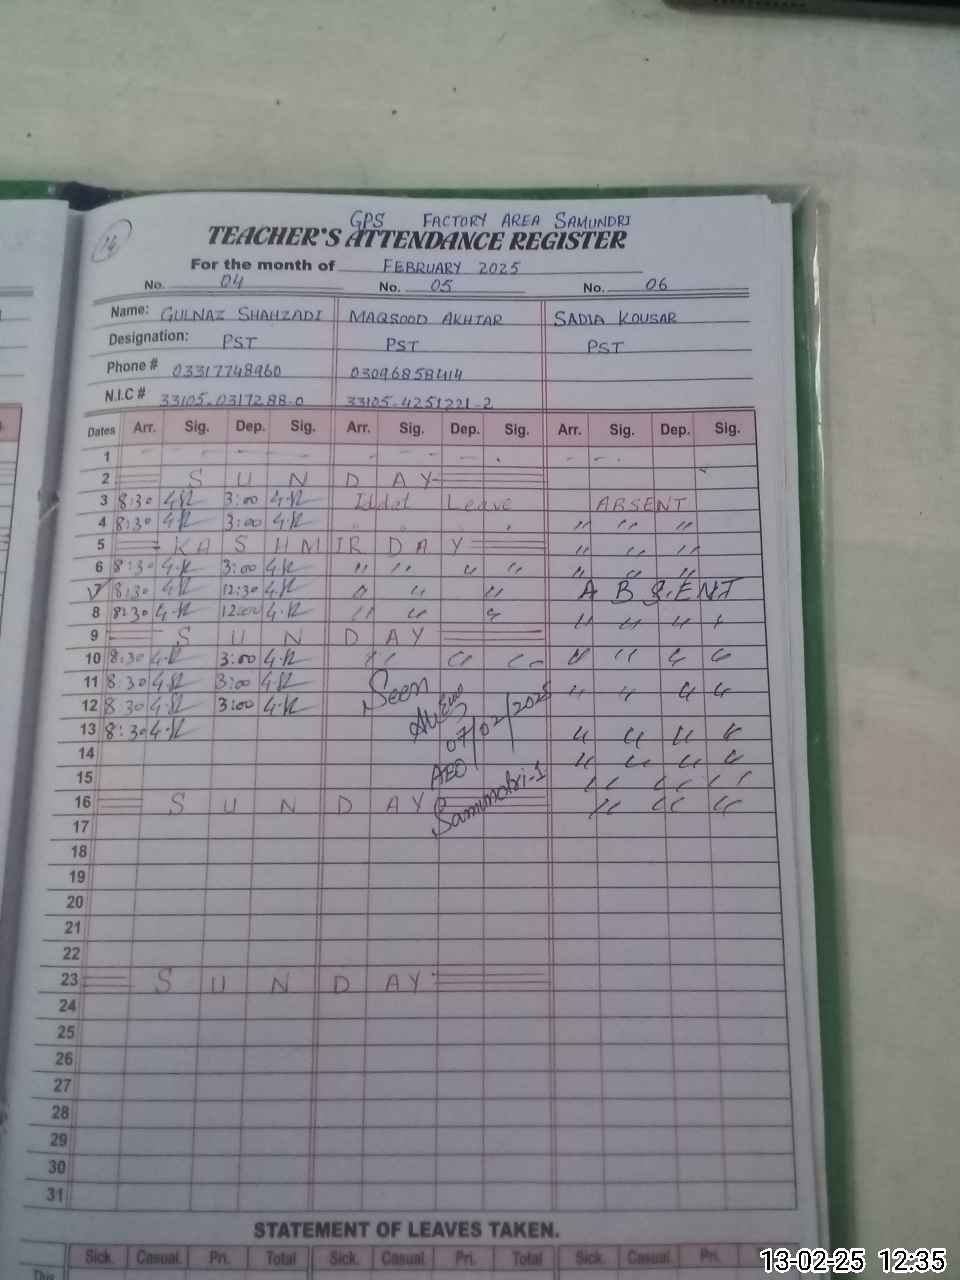 GPS FACTORY AREA SAMUNDRI
TEACHER'S ATTENDANCE REGISTER
For the month of FEBRUARY 2025
No. 04 No. 05 No. 06
Name: GULNAZ SHAHZADI MAQSOOD AKHTAR SADIA KOUSAR
Designation: PST PST PST
Phone # 03317748960 03096858414
N.I.C # 33105-0317288-0 33105-4251221-2
Dates Arr. Sig. Dep. Sig. Arr. Sig. Dep. Sig. Arr. Sig. Dep. Sig.
1
2 SUNDAY
3 8:30 3:00 Leave ABSENT
4 8:30 3:00 " " "
5 KASHMIR DAY " " "
6 8:30 3:00 " " " " " " "
7 8:30 12:30 " " " ABSENT
8 8:30 12:00 " " " " " " "
9 SUNDAY
10 8:30 3:00 " " " " " " "
11 8:30 3:00 Seen " " " "
12 8:30 3:00 07/02/2025
13 8:30 " " " "
14 AEO " " " "
15 Samundri-1 " " "
16 SUNDAY " " "
17
18
19
20
21
22
23 SUNDAY
24
25
26
27
28
29
30
31
STATEMENT OF LEAVES TAKEN.
Sick. Casual. Pri. Total Sick. Casual. Pri. Total Sick. Casual. Pri.
This
13-02-25 12:35